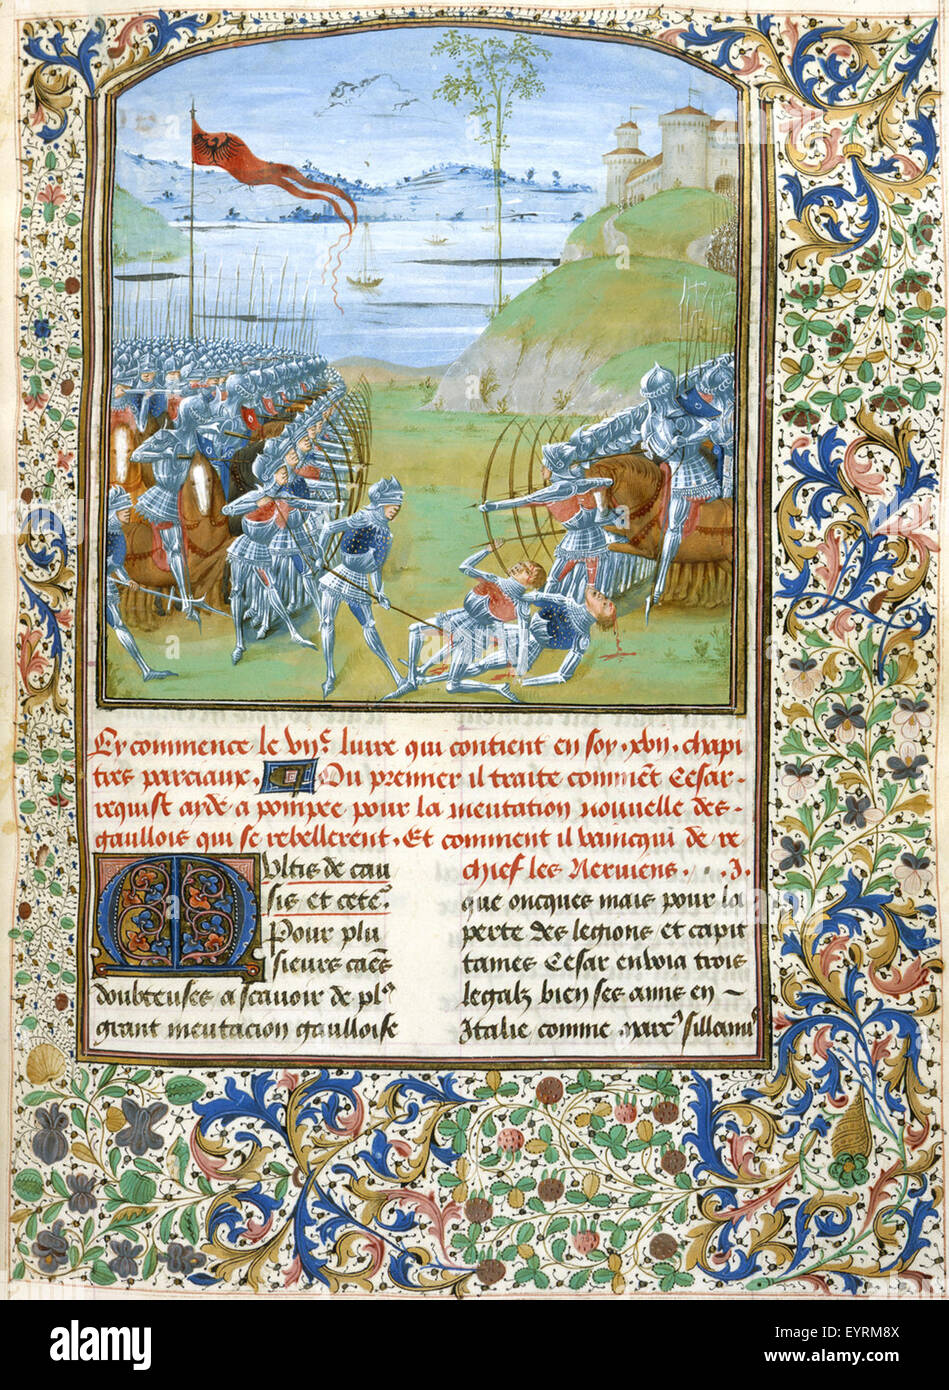 Cy commence le vijᵉ livre qui contient en soy .xvij. chapi
tres parciaux. Du premier il traite commēt Cesar
requist aide a pompee pour la meutation nouvelle des
gaullois qui se rebellerent. Et comment il vaincqui de re
chief les Nerviens. . . j.
Multis de cau
sis et cete͂
Pour plu
sieurs caes
doubteuses a scavoir de plꝰ
grant meutacion gaulloise
que oncques mais pour la
perte des legions et capit
taines Cesar envoia trois
legatz bien ses amis en
Italie comme Marcꝰ sillanꝰ
alamy
Image ID: EYRM8X
www.alamy.com